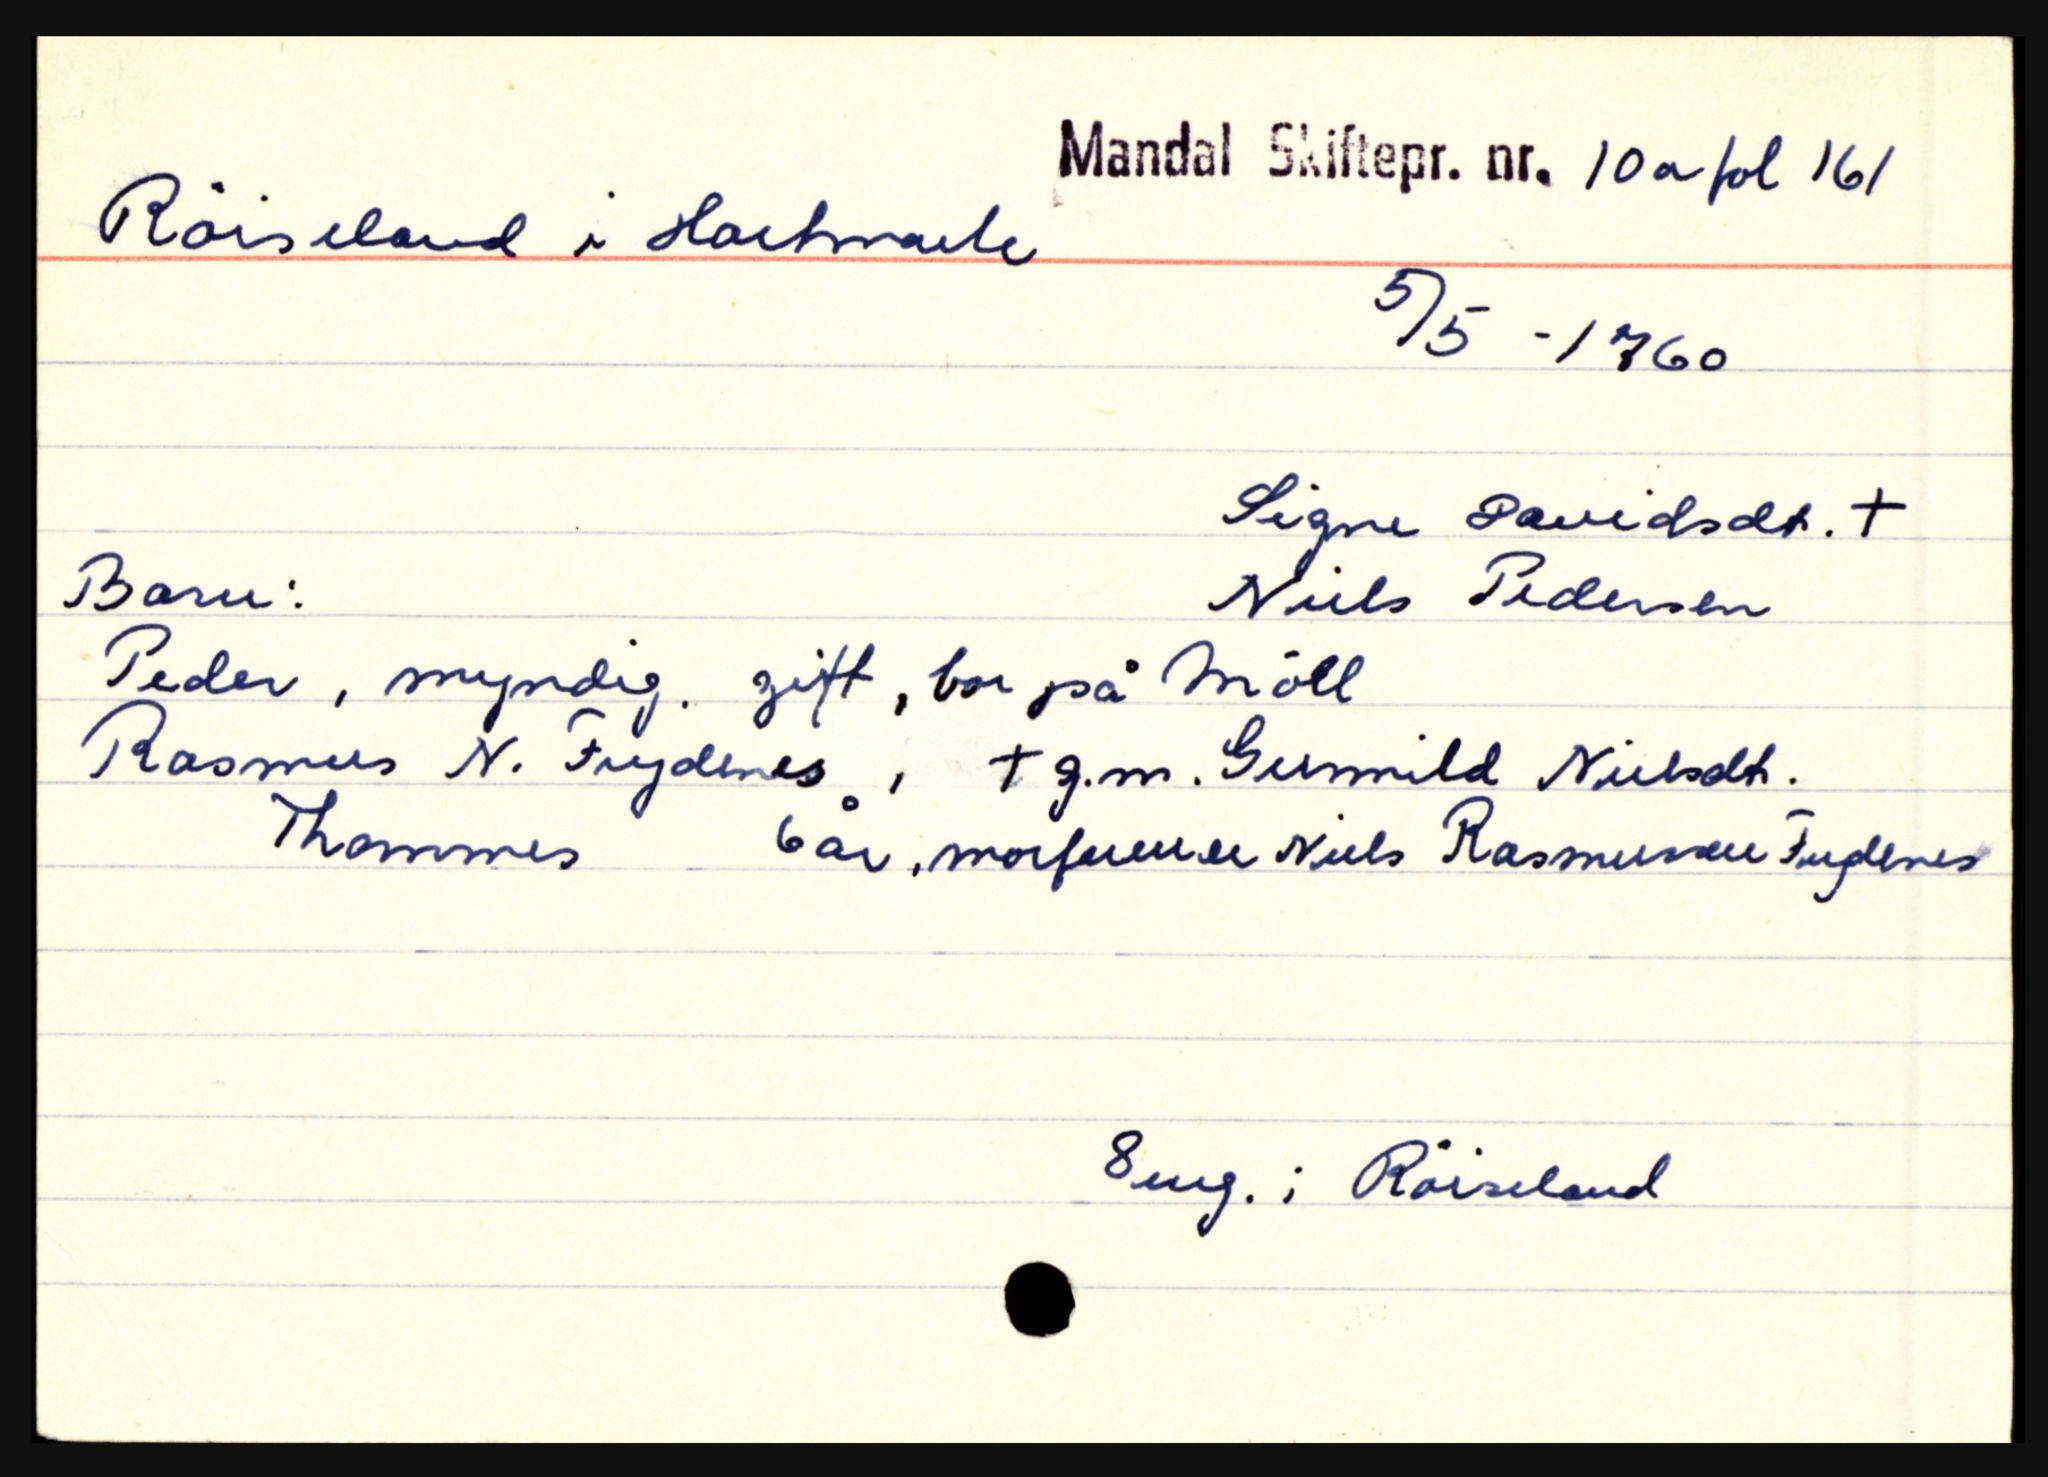 Mandal Skiftepr. nr. 10a fol 161
Röiseland i Hartmark
5/5 - 1760
Signe Davidsdt. +
Barn:
Niels Pedersen
Peder, myndig. gift, bor på Möll
Rasmus N. Tngdenes, + g.m. Gunnild Nielsdt.
Thommes 6 år, morfaren er Niels Rasmussen
8 eng. i Röiseland